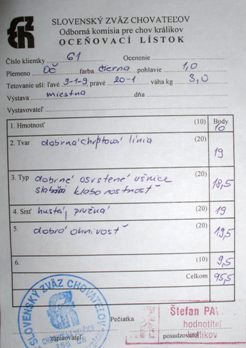 SLOVENSKÝ ZVÄZ CHOVATEĽOV
Odborná komisia pre chov králikov
OCEŇOVACÍ LÍSTOK
Číslo klietky 61 Ocenenie
Plemeno DČ farba čierna pohlavie 1,0
Tetovanie uší: ľavé 9-1-9 pravé 20-1 váha kg 3,0
Výstava miestna dňa
Vystavovateľ
Body
1. Hmotnosť (10) 10
2. Tvar dobrá chrbtová línia (20) 19
3. Typ dobrné osrstené ušnice (20) 18,5
slabšia klabonostnosť
4. Srsť hustá, pružná (20) 19
5. dobrá ohnivosť (20) 19,5
6. (10) 9,5
Celkom 95,5
SLOVENSKÝ ZVÄZ CHOVATEĽOV
Pečiatka
Štefan
hodnotiteľ
králikov
zapisovateľ posudzovateľ